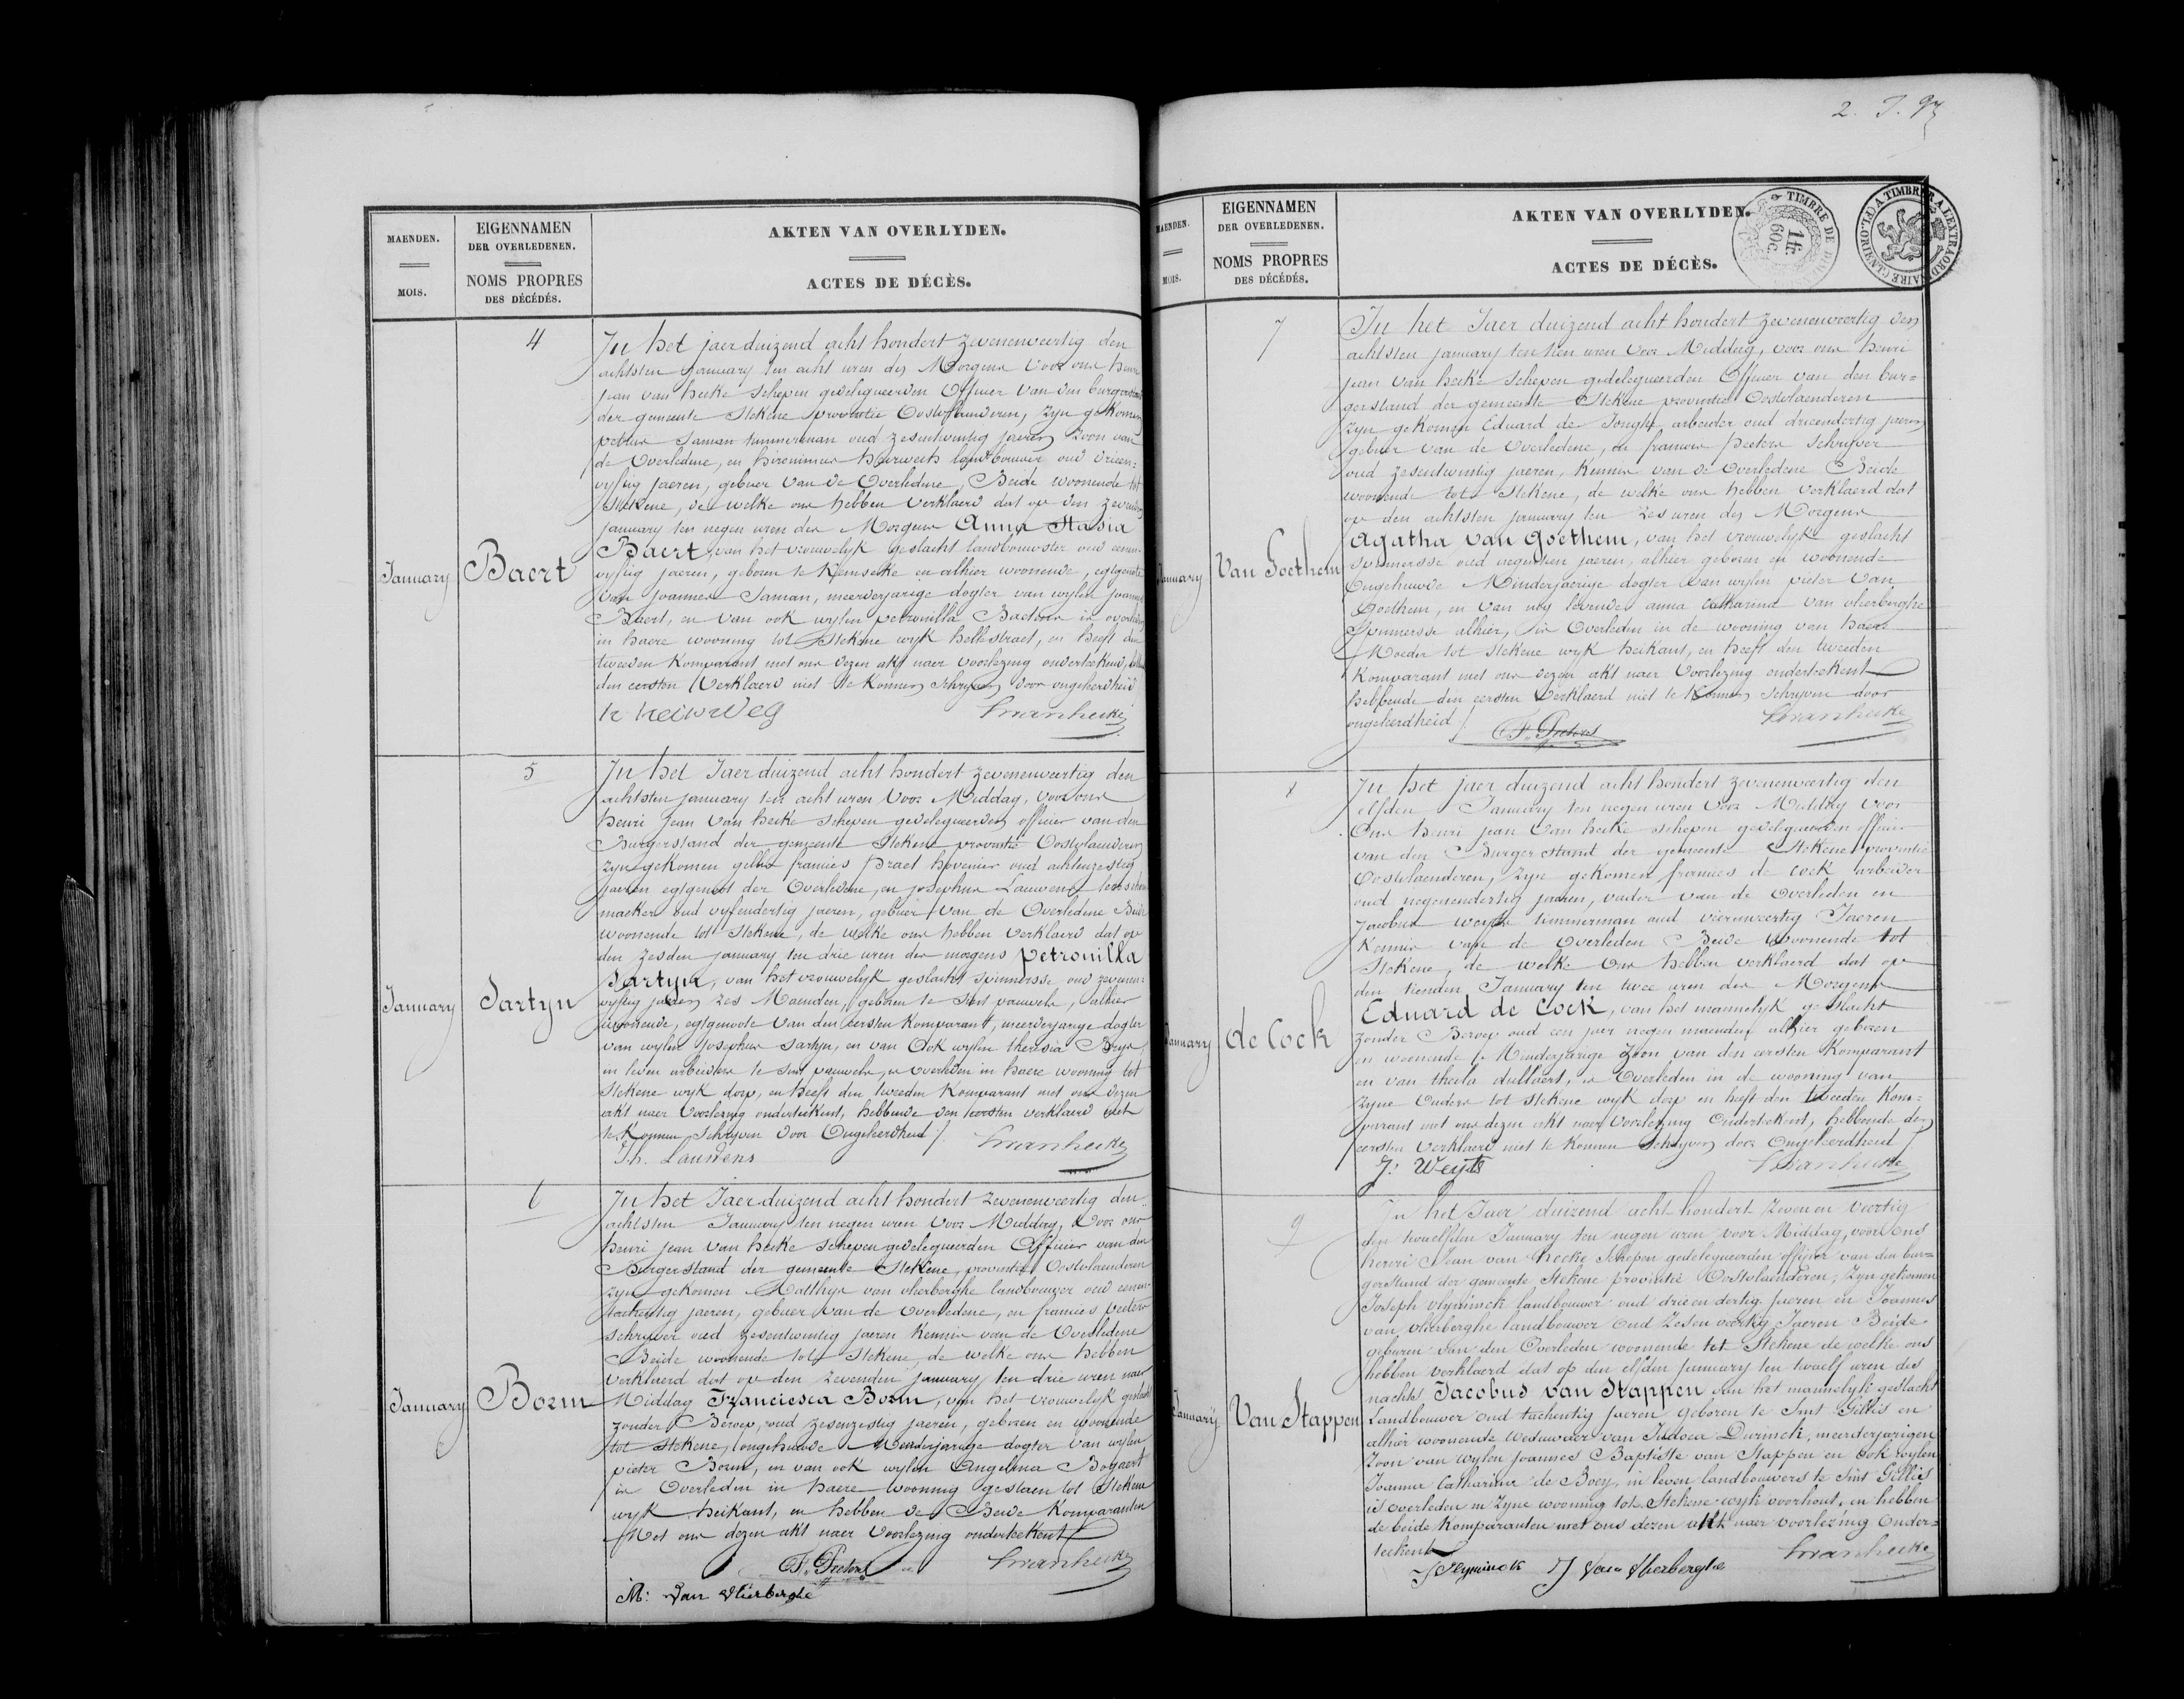 MAENDEN.
MOIS.
EIGENNAMEN
DER OVERLEDENEN.
NOMS PROPRES
DES DÉCÉDÉS.
AKTEN VAN OVERLYDEN.
ACTES DE DÉCÈS.
4
January
Baert
In het jaer duizend acht hondert zevenenveertig den
achtsten january ten acht uren des Morgens Voor ons henri
jean van hecke schepen gedelegueerden Officier van den burgerstand
der gemeente Stekene provintie Oostvlaenderen, zyn gekomen
petrus Saman timmerman oud zesentwintig jaeren zoon van
de Overledene, en landbouwer oud drieen-
vyftig jaeren, gebuer van de Overledene, Beide woonende tot
Stekene, de welke ons hebben verklaerd dat op den zevenden
january ten negen uren des Morgens Anna Stasia
Baert, van het vrouwelyk geslacht landbouwster oud eenen-
vyftig jaeren, geboren te Kemseke en alhier woonende, egtgenote
van Joannes Saman, meerderjarige dogter van wylen joannes
Baert, en van ook wylen petronilla is overleden
in haere wooning tot Stekene wyk hellestraet, en heeft den
tweeden Komparant met ons dezen akt naer voorlezing onderteekend,
den eersten Verklaerd niet te Konnen Schryven door ongeleerdheid
5
January
Sartyn
In het Jaer duizend acht hondert zevenenveertig den
achtsten january ten acht uren Voor Middag, voor ons
henri jean Van hecke schepen gedelegueerden officier van den
Burgerstand der gemeente Stekene provintie Oostvlaenderen
zyn gekomen gillis francies Prael hovenier oud achtenzestig
jaeren egtgenoot der Overledene, en josephus Lauwens
maeker oud vyfendertig jaeren, gebuer van de Overledene Beide
woonende tot Stekene, de welke ons hebben verklaerd dat op
den zesden january ten drie uren des morgens petronilla
Sartyn, van het vrouwelyk geslacht spinnersse, oud zevenen-
vyftig jaeren zes Maenden, geboren te Sint pauwels, alhier
woonende, egtgenoote van den eersten Komparant, meerderjarige dogter
van wylen Josephus Sartyn, en van Ook wylen theresia
in leven arbeiders te Sint pauwels, is overleden in haere wooning tot
Stekene wyk dorp, en heeft den tweeden Komparant met ons dezen
akt naer Voorlezing onderteekent, hebbende den eersten verklaerd niet
te Konnen Schryven door Ongeleerdheid
Jh. Lauwens
6
January
Borm
In het Jaer duizend acht hondert zevenenveertig den
achtsten January ten negen uren Voor Middag, Voor ons
henri jean van hecke schepen gedelegueerden Officier van den
Burgerstand der gemeente Stekene, provintie Oostvlaenderen
zyn gekomen Matthys van vlierberghe landbouwer oud eenen-
tachentig jaeren, gebuer van de overledene, en francies peeters
schryver oud zesentwintig jaeren Kennis van de Overledene
Beide woonende tot Stekene, de welke ons hebben
Verklaerd dat op den zevenden january ten drie uren naer
Middag Franciesca Borm, van het vrouwelyk geslacht
zonder Beroep, oud zesenzestig jaeren, geboren en woonende
tot Stekene, ongehuwde Meerderjarige dogter Van wylen
pieter Borm, en van ook wylen Angelina Bogaert
is Overleden in haere Wooning gestaen tot Stekene
wyk heikant, en hebben de Beide Komparanten
Met ons dezen akt naer Voorlezing onderteekent
F. Peeters
M: Van Vlierberghe
2. J. 97
MAENDEN.
MOIS.
EIGENNAMEN
DER OVERLEDENEN.
NOMS PROPRES
DES DÉCÉDÉS.
AKTEN VAN OVERLYDEN.
ACTES DE DÉCÈS.
TIMBRE DE
1 fr.
60 c.
A TIMBRER A L'EXTRAORDINAIRE
7
January
Van Goethem
In het Jaer duizend acht hondert zevenenveertig den
achtsten january ten tien uren Voor Middag, voor ons henri
jean van hecke Schepen gedelegueerden Officier van den bur-
gerstand der gemeente Stekene provintie Oostvlaenderen
zyn gekomen Eduard de Jonghe arbeider oud drieendertig jaeren
gebuer van de Overledene, en francies peeters schryver
oud zesentwintig jaeren, Kennis van de Overledene Beide
woonende tot Stekene, de welke ons hebben verklaerd dat
op den achtsten january ten zes uren des Morgens
Agatha Van Goethem, van het vrouwelyk geslacht
spinnersse oud negentien jaeren, alhier geboren en woonende
Ongehuwde Minderjarige dogter van wylen pieter Van
Goethem, en van nog levende anna Catharina van vlierberghe
spinnersse alhier, is Overleden in de wooning van haere
Moeder tot Stekene wyk heikant, en heeft den tweeden
Komparant met ons dezen akt naer Voorlezing onderteekent
hebbende den eersten Verklaerd niet te Konnen schryven door
ongeleerdheid
F. Peeters
8
January
de Cock
In het jaer duizend acht hondert zevenenveertig den
elfden January ten negen uren Voor Middag Voor
Ons henri jean Van hecke schepen gedelegueerden officier
van den Burgerstand der gemeente Stekene provintie
Oostvlaenderen, zyn gekomen francies de Cock arbeider
oud negenendertig jaeren, vader van de Overleden en
Jacobus Weyts timmerman oud vierenveertig Jaeren
Kennis van de Overleden Beide Woonende tot
Stekene, de welke Ons hebben verklaerd dat op
den tienden January ten twee uren des Morgens
Eduard de Cock, van het mannelyk geslacht
zonder Beroep oud een jaer negen maenden alhier geboren
en woonende Minderjarige Zoon van den eersten Komparant
en van thecla dullaert, is Overleden in de wooning van
zyne Ouders tot Stekene wyk dorp en heeft den tweeden Kom-
parant met ons dezen akt naer voorlezing Onderteekent, hebbende den
eersten Verklaerd niet te Konnen Schryven door Ongeleerdheid
J: Weyts
9
January
Van Stappen
In het Jaer duizend acht hondert Zeven en Veertig
den twaelfden January ten negen uren voor Middag, voor Ons
henri Jean van hecke Schepen gedelegueerden officier van den bur-
gerstand der gemeente Stekene provintie Oostvlaenderen, Zyn gekomen
Joseph vlyminck landbouwer oud drieen dertig Jaeren en Joannes
van vlierberghe landbouwer Oud Zesen veertig Jaeren Beide
geburen van den Overleden woonende tot Stekene de welke ons
hebben verklaerd dat op den elfden January ten twaelf uren des
nachts Jacobus van Stappen van het mannelyk geslacht
Landbouwer oud tachentig Jaeren geboren te Sint Gillis en
alhier woonende Weduwaer van Judoca Durinck, meerderjarigen
Zoon van wylen Joannes Baptiste van Stappen en Ook wylen
Joanna Catharina de Boey, in leven landbouwers te Sint Gillis
is overleden in Zyne wooning tot Stekene wyk voorhout, en hebben
de beide Komparanten met ons dezen akt naer voorlezing Onder-
teekent
J Vlyminck J Van Vlierberghe